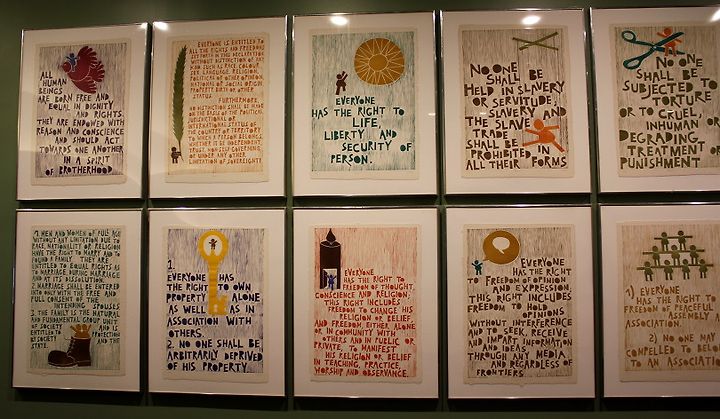 ALL
HUMAN
BEINGS
ARE BORN FREE AND
EQUAL IN DIGNITY
AND RIGHTS.
THEY ARE ENDOWED WITH
REASON AND CONSCIENCE
AND SHOULD ACT
TOWARDS ONE ANOTHER
IN A SPIRIT
OF BROTHERHOOD
EVERYONE IS ENTITLED TO
ALL THE RIGHTS AND FREEDOMS
SET FORTH IN THIS DECLARATION
WITHOUT DISTINCTION OF ANY
KIND SUCH AS RACE, COLOUR
SEX, LANGUAGE, RELIGION,
POLITICAL OR OTHER OPINION,
NATIONAL OR SOCIAL ORIGIN
PROPERTY BIRTH OR OTHER
STATUS.
FURTHERMORE,
NO DISTINCTION SHALL BE MADE
ON THE BASIS OF THE POLITICAL
JURISDICTIONAL OR
INTERNATIONAL STATUS OF
THE COUNTRY OR TERRITORY
TO WHICH A PERSON BELONGS,
WHETHER IT BE INDEPENDENT,
TRUST, NON-SELF GOVERNING
OR UNDER ANY OTHER
LIMITATION OF SOVEREIGNTY
EVERYONE
HAS THE RIGHT TO
LIFE,
LIBERTY AND
SECURITY OF
PERSON.
NO ONE
SHALL BE
HELD IN SLAVERY
OR SERVITUDE,
SLAVERY AND
THE SLAVE
TRADE
SHALL BE
PROHIBITED IN
ALL THEIR FORMS
NO ONE
SHALL BE
SUBJECTED TO
TORTURE
OR TO CRUEL,
INHUMAN OR
DEGRADING
TREATMENT OR
PUNISHMENT
1. MEN AND WOMEN OF FULL AGE
WITHOUT ANY LIMITATION DUE TO
RACE, NATIONALITY OR RELIGION
HAVE THE RIGHT TO MARRY AND TO
FOUND A FAMILY. THEY ARE
ENTITLED TO EQUAL RIGHTS AS
TO MARRIAGE, DURING MARRIAGE
AND AT ITS DISSOLUTION.
2. MARRIAGE SHALL BE ENTERED
INTO ONLY WITH THE FREE AND
FULL CONSENT OF THE
INTENDING SPOUSES
3. THE FAMILY IS THE NATURAL
AND FUNDAMENTAL GROUP UNIT
OF SOCIETY AND IS
ENTITLED TO PROTECTION
BY SOCIETY AND THE
STATE.
1.
EVERYONE HAS
THE RIGHT TO OWN
PROPERTY ALONE
AS WELL AS IN
ASSOCIATION WITH
OTHERS.
2. NO ONE SHALL BE
ARBITRARILY DEPRIVED
OF HIS PROPERTY.
EVERYONE
HAS THE RIGHT TO
FREEDOM OF THOUGHT,
CONSCIENCE AND RELIGION;
THIS RIGHT INCLUDES
FREEDOM TO CHANGE HIS
RELIGION OR BELIEF
AND FREEDOM, EITHER ALONE
OR IN COMMUNITY WITH
OTHERS AND IN PUBLIC OR
PRIVATE, TO MANIFEST
HIS RELIGION OR BELIEF
IN TEACHING, PRACTICE,
WORSHIP AND OBSERVANCE.
EVERYONE
HAS THE RIGHT
TO FREEDOM OF OPINION
AND EXPRESSION,
THIS RIGHT INCLUDES
FREEDOM TO HOLD
OPINIONS
WITHOUT INTERFERENCE
AND TO SEEK, RECEIVE
AND IMPART INFORMATION
AND IDEAS
THROUGH ANY MEDIA
AND REGARDLESS OF
FRONTIERS
1) EVERYONE
HAS THE RIGHT TO
FREEDOM OF PEACEFUL
ASSEMBLY
ASSOCIATION.
2) NO ONE MAY
COMPELLED TO BELO
TO AN ASSOCIATION